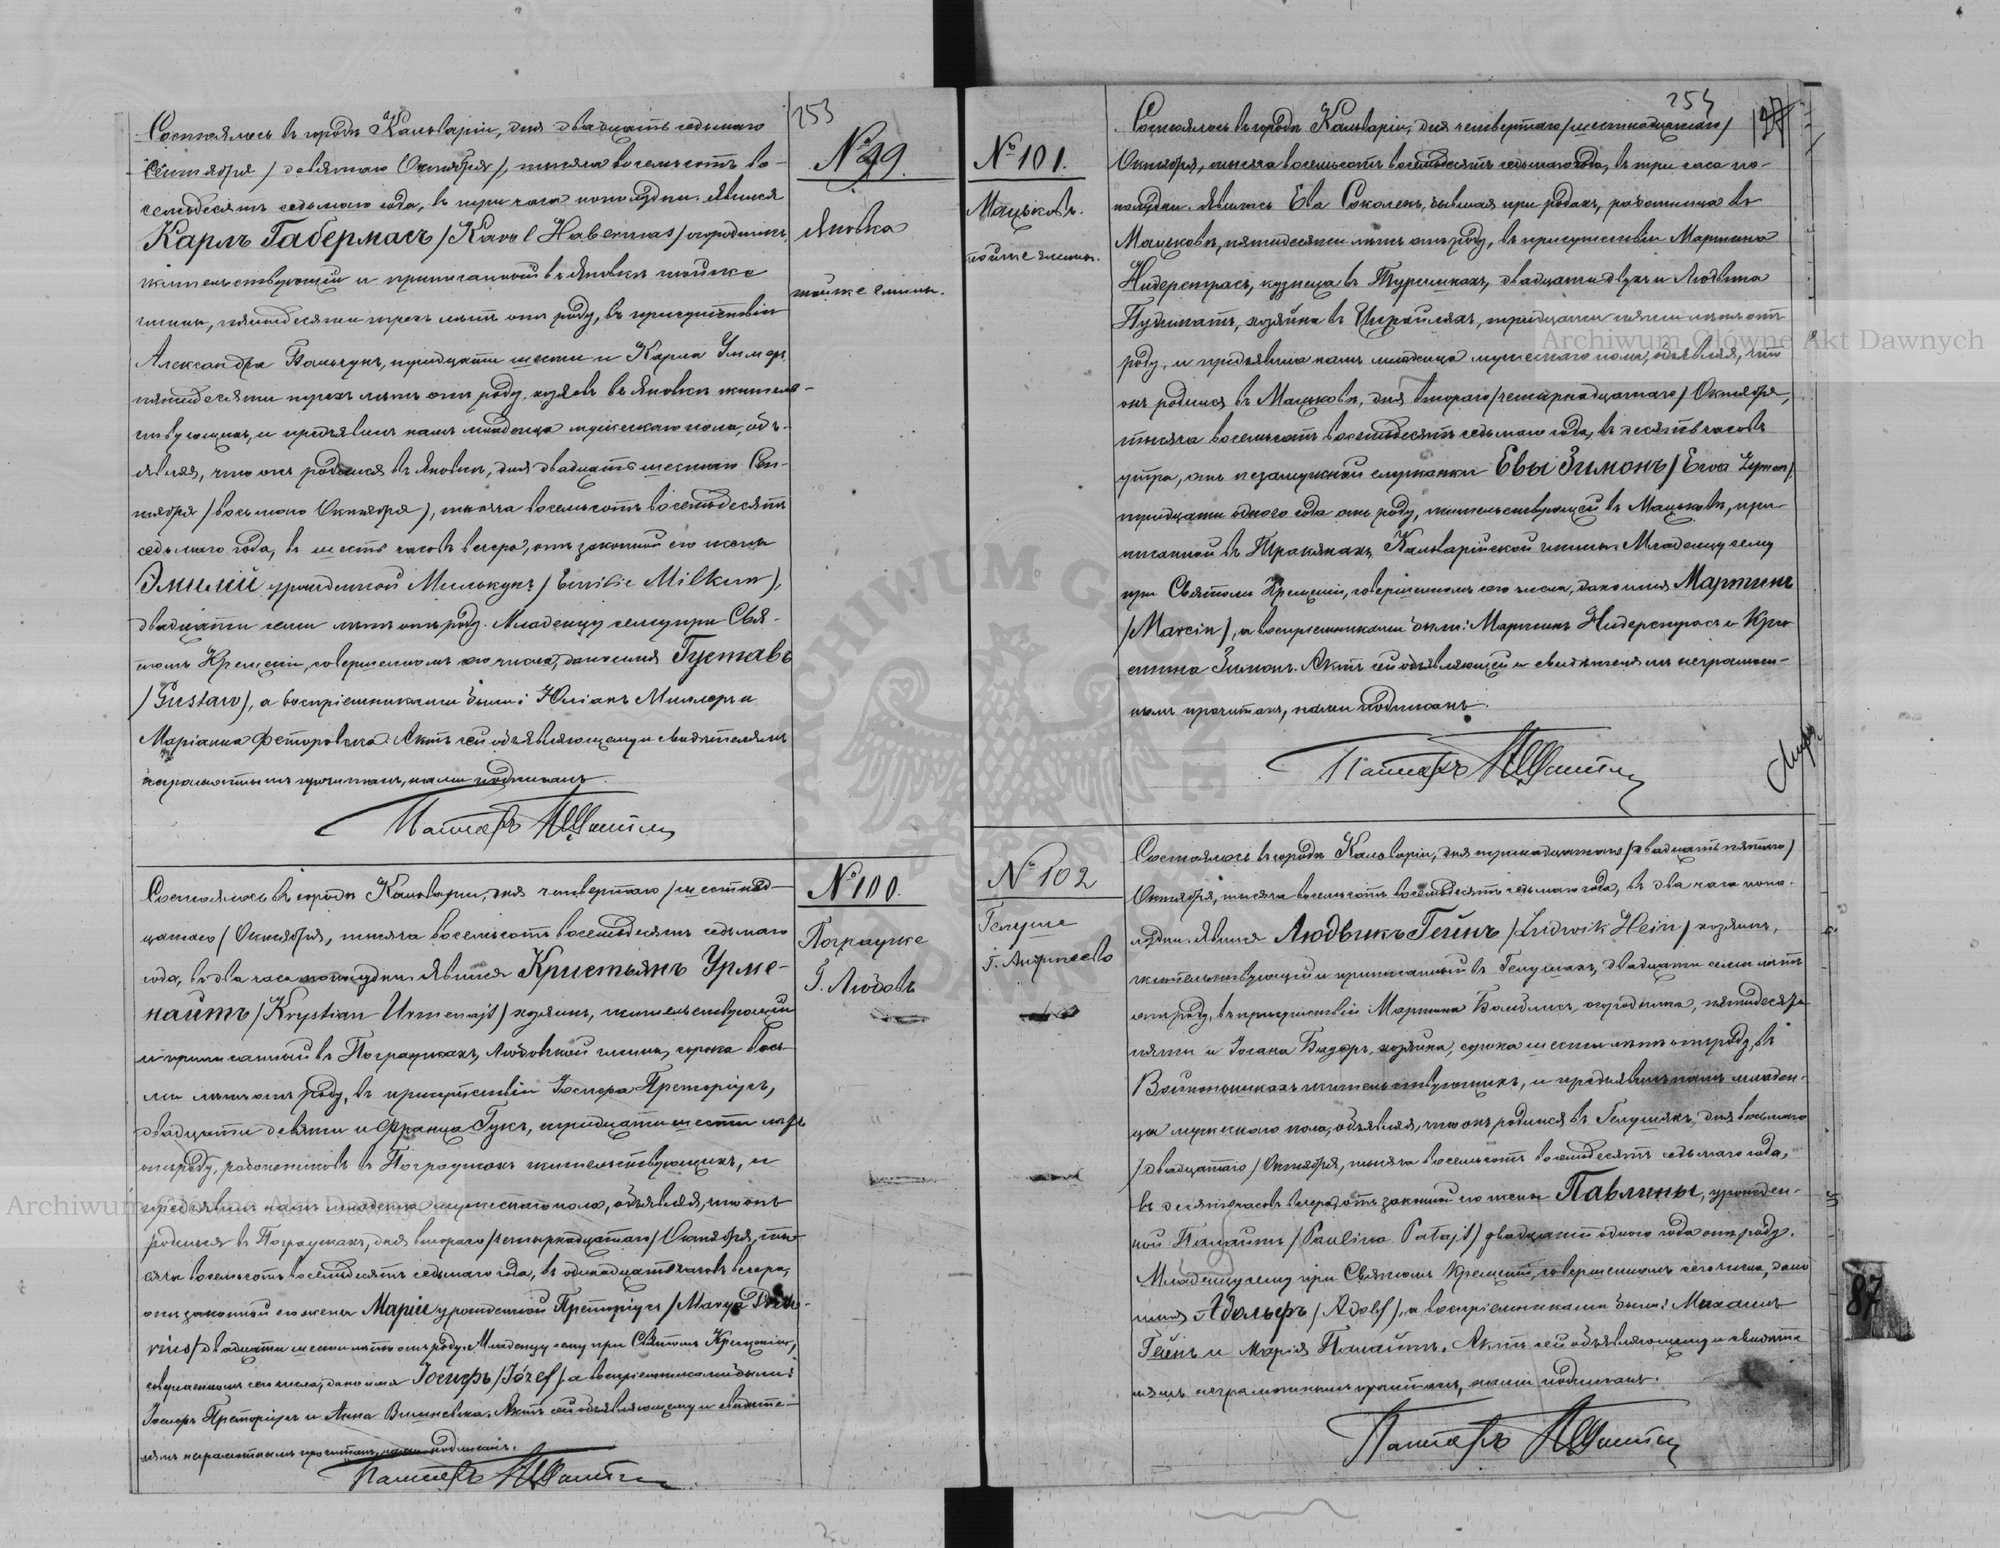 253
Состоялось въ городѣ Кальваріи, дня двадцать седьмаго
Сентября / девятаго Октября /, тысяча восемьсотъ во-
семьдесятъ седьмаго года, въ три часа пополудни. Явился
Карлъ Габермасъ / Karol Habermas / огородникъ
жительствующій и приписанный въ Яновкѣ тойже
гмины, пятидесяти трехъ лѣтъ отъ роду, въ присутствіи
Александра Паньчукъ, тридцати шести и Карла
пятидесяти трехъ лѣтъ отъ роду, хозяевъ въ Яновкѣ житель-
ствующихъ, и предъявилъ намъ младенца мужескаго пола, объ-
являя, что онъ родился въ Яновкѣ, дня двадцать шестаго Сен-
тября / восьмаго Октября /, тысяча восемьсотъ восемьдесятъ
седьмаго года, въ шесть часовъ вечера, отъ законной его жены
Эмиліи урожденной Милькунъ / Emilie Milkun /,
двадцати семи лѣтъ отъ роду. Младенцу сему при Свя-
томъ Крещеніи, совершенномъ сего числа, дано имя Густавъ
/ Gustaw /, а воспріемниками были: Юліанъ Миллеръ и
Маріанна Федоровска. Актъ сей объявляющему и свидѣтелямъ
неграмотнымъ прочитанъ, нами подписанъ.
Пасторъ
№ 99
Яновка
тойже гмины.
Состоялось въ городѣ Кальваріи, дня четвертаго / шестнад-
цатаго / Октября, тысяча восемьсотъ восемьдесятъ седьмаго
года, въ два часа пополудни. Явился Кристьянъ Урме-
найтъ / Krystian Urmenajt / хозяинъ, жительствующій
и приписанный въ Пограужахъ, Любовской гмины, сорока вось-
ми лѣтъ отъ роду, въ присутствіи Іосифа Преторіусъ,
двадцати девяти и Франца Гукъ, тридцати шести лѣтъ
отъ роду, работниковъ въ Пограужахъ жительствующихъ, и
предъявилъ намъ младенца мужескаго пола, объявляя, что онъ
родился въ Пограужахъ, дня втораго / четырнадцатаго / Октября, ты-
сяча восемьсотъ восемьдесятъ седьмаго года, въ одинадцать часовъ вечера,
отъ законной его жены Маріи урожденной Преторіусъ / Marya Preto-
rius / двадцати шести лѣтъ отъ роду. Младенцу сему при Святомъ Крещеніи,
совершенномъ сего числа, дано имя Іосифъ / Józef /, а воспріемниками были:
Іосифъ Преторіусъ и Анна Вишневска. Актъ сей объявляющему и свидѣте-
лямъ неграмотнымъ прочитанъ, нами подписанъ.
Пасторъ
№ 100.
Пограуже
Г. Любовъ
254
№ 101.
Мацьковъ.
тойже гмины.
Состоялось въ городѣ Кальваріи, дня четвертаго / шестнадцатаго /
Октября, тысяча восемьсотъ восемьдесятъ седьмаго года, въ три часа по-
полудни. Явилась Ева Соколенъ, бывшая при родахъ, работница въ
Мацьковѣ, пятидесяти лѣтъ отъ роду, въ присутствіи Мартина
Нидерстрасъ, кузнеца въ Турчинахъ, двадцати двухъ и Людвига
хозяина въ тридцати пяти лѣтъ отъ
роду, и предъявила намъ младенца мужескаго пола, объявляя, что
онъ родился въ Мацьковѣ, дня втораго / четырнадцатаго / Октября,
тысяча восемьсотъ восемьдесятъ седьмаго года, въ десять часовъ
утра, отъ незамужной служанки Евы Зимонъ / Ewa Zymon /
тридцати одного года отъ роду, жительствующей въ Мацьковѣ, при-
писанной въ Тракянахъ Кальварійской гмины. Младенцу сему
при Святомъ Крещеніи, совершенномъ сего числа, дано имя Мартинъ
/ Marcin /, а воспріемниками были: Мартинъ Нидерстрасъ и Кри-
стина Зимонъ. Актъ сей объявляющей и свидѣтелямъ неграмот-
нымъ прочитанъ, нами подписанъ.
Пасторъ
№ 102
Гелуше
Г. Андржеево
Состоялось въ городѣ Кальваріи, дня тринадцатаго / двадцать пятаго /
Октября, тысяча восемьсотъ восемьдесятъ седьмаго года, въ два часа попо-
лудни. Явился Людвикъ Гейнъ / Ludwik Hein / хозяинъ,
жительствующій и приписанный въ Гелушахъ, двадцати семи лѣтъ
отъ роду, въ присутствіи Мартина огородника, пятидесяти
пяти и Іогана хозяина, сорока шести лѣтъ отъ роду, въ
жительствующихъ, и предъявилъ намъ младен-
ца мужескаго пола, объявляя, что онъ родился въ Гелушахъ, дня восьмаго
/ двадцатаго / Октября, тысяча восемьсотъ восемьдесятъ седьмаго года,
въ десять часовъ вечера, отъ законной его жены Павлины, урожден-
ной Патайтъ / Paulina Patajt / двадцати одного года отъ роду.
Младенцу сему при Святомъ Крещеніи, совершенномъ сего числа, дано
имя Адольфъ / Adolf /, а воспріемниками были: Михаилъ
Гейнъ и Марія Патайтъ. Актъ сей объявляющему и свидѣте-
лямъ неграмотнымъ прочитанъ, нами подписанъ.
Пасторъ
87
Archiwum Główne Akt Dawnych
Archiwum Główne Akt Dawnych